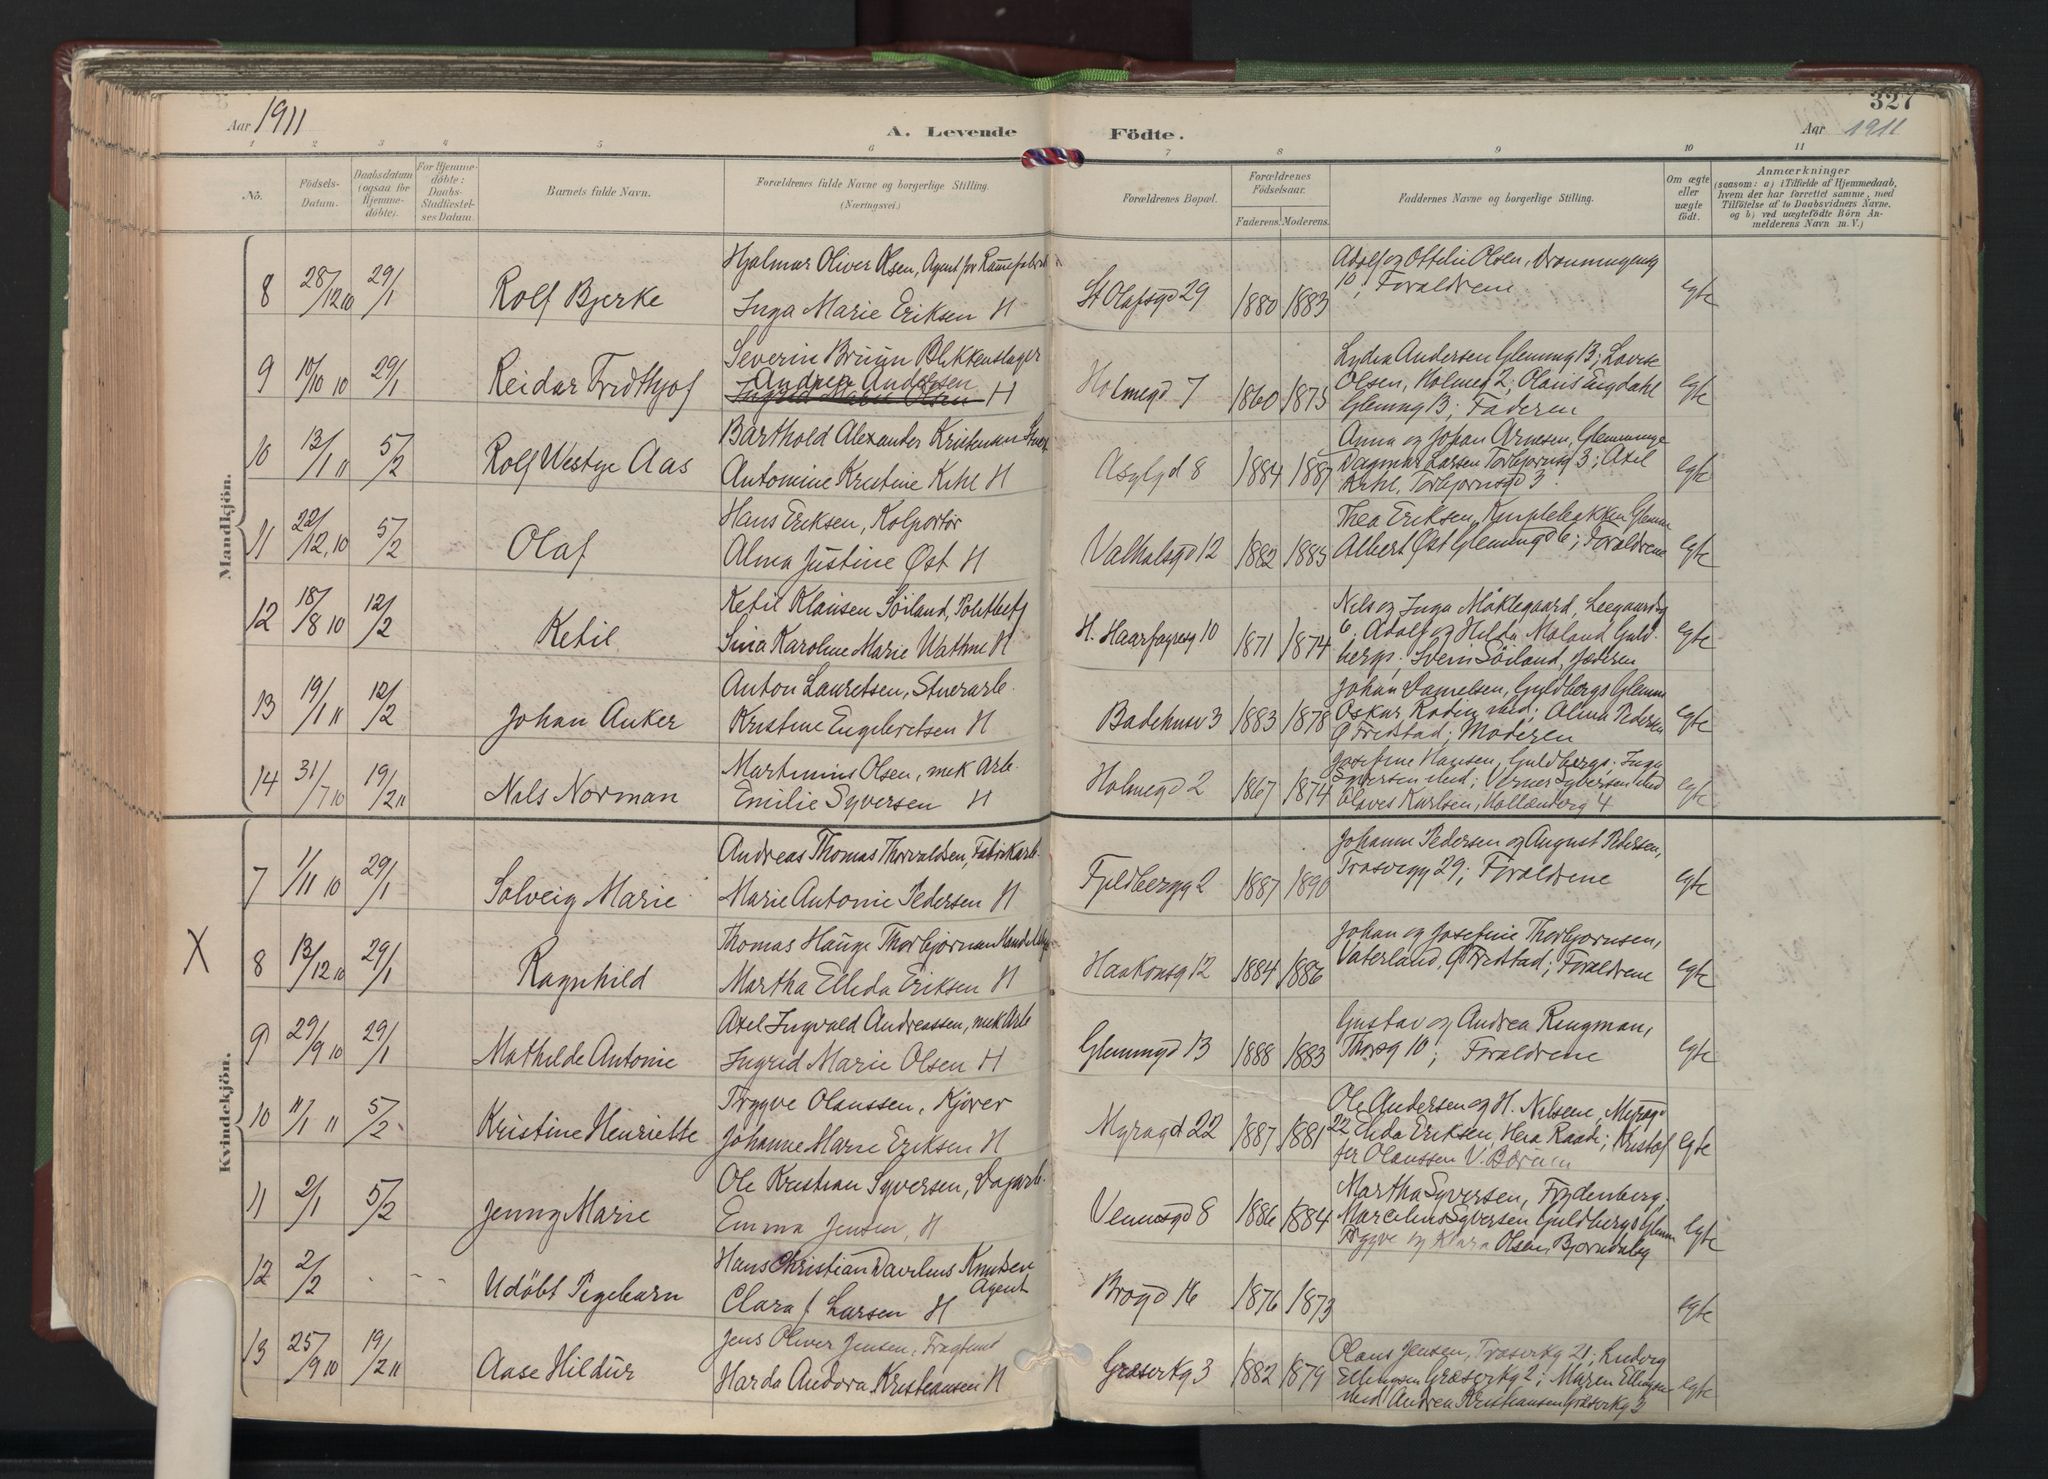 327
Aar 1911
A. Levende Födte.
Aar 1911
1 2 3 4 5 6 7 8 9 10 11
No.
Födsels-Datum.
Daabsdatum (ogsaa for Hjemmedöbte).
For Hjemmedöbte: Daabs-Stadfæstelses Datum.
Barnets fulde Navn.
Forældrenes fulde Navne og borgerlige Stilling. (Næringsvei.)
Forældrenes Bopæl.
Forældrenes Födselsaar.
Faderens. Moderens.
Faddernes Navne og borgerlige Stilling.
Om ægte eller uægte födt.
Anmærkninger
(saasom: a) i Tilfælde af Hjemmedaab, hvem der har forrettet samme, med Tilföielse af to Daabsvidners Navne, og b) ved uægtefödte Börn Anmelderens Navn m. V.)
Mandkjön.
Hjalmar Oliver Olsen, Agent for
Adolf og Ottilie Olsen, Dronningensg
8 28/12 10 29/1 Rolf Bjerke Inga Marie Eriksen H St Olafsgd 29 1880 1883 10; Forældrene egte
Severin Bruun Blikkenslager
Lydia Andersen Glemmg 13; Lovise
9 10/10 10 29/1 Reidar Fridthjof Andrea Andersen Ingrid Marie Olsen H Holmegd 7 1860 1875 Olsen, Holmeg 2; Olaus Engdahl egte
Glemmg 13; Faderen
Barthold Alexander Kristensen
Anna og Johan Arnesen, Glemminge
10 13/1 11 5/2 Rolf Westye Aas Antonine Kristine Kihl H Asylgd 8 1884 1887 Dagmar Larsen Torbjørnsg 3; Axel egte
Kihl, Torbjørnsgd 3
Hans Eriksen, Kolportør
Thea Eriksen, Kniplebakken Glemm
11 22/12 10 5/2 Olaf Alma Justine Øst H Valhalsgd 12 1882 1885 Albert Øst Glemmgd 6; Forældrene egte
Ketil Klausen Söiland, Politbetj
Nils og Inga Møklegaard, Leegaardsg
12 18/8 10 12/2 Ketil Sina Karoline Marie Wathne H H. Haarfagresg 10 1871 1874 6; Adolf og Hilda Moland Guldbergs; Svein Söiland, Jæderen egte
Anton Lauritsen, Stuerarb.
Johan Danielsen, Guldbergs Glemm
13 19/1 11 12/2 Johan Anker Kristine Engebretsen H Badehusv 3 1883 1878 Oskar Rodin, med; Alma Pedersen egte
Ø Fredstad; Moderen
Martinius Olsen, mek Arb.
Josefine Hansen, Guldbergs; Inga
14 31/7 10 19/2 11 Nils Norman Emilie Syversen H Holmegd 2 1867 1874 Syversen sted; Verner Syversen sted egte
Olaves Karlsen, Hollænderg 4
Kvindekjön.
Andreas Thomas Thorvaldsen, Fabrikarb.
Johanne Pedersen og August Pedersen,
7 1/11 10 29/1 Solveig Marie Marie Antonie Pedersen H Fjeldbergg 2 1887 1890 Trosvegg 29; Forældrene egte
Thomas Hauge Thorbjørnsen
Johan og Josefine Thorbjørnsen,
X 8 13/12 10 29/1 Ragnhild Martha Elleda Eriksen H Haakonsg 12 1884 1886 Vaterland, Ø Fredstad; Forældrene egte
Axel Ingvald Andreassen, mek Arb
Gustav og Andrea Ringman,
9 29/9 10 29/1 Mathilde Antonie Ingrid Marie Olsen H Glemmgd 13 1888 1883 Thorsg 10; Forældrene egte
Trygve Olaussen, Kjører
Ole Andersen og H. Nilsen, Myragd
10 11/1 11 5/2 Kristine Henriette Johanne Marie Eriksen H Myragd 22 1887 1881 22 Elida Eriksen, Hera Raade; Kristof egte
fer Olaussen V. Borum
Ole Kristian Syversen, Dagarb.
Martha Syversen, Frydenberg.
11 2/1 5/2 Jenny Marie Emma Jensen, H Vennisgd 8 1886 1884 Marcelius Syversen Guldbergs Glemm egte
Trygve og Klara Olsen, Bjørndalsg
Hans Christian Davilius Knudsen
Agent
12 2/2 - - - Udöbt Pigebarn Clara f. Larsen H Brogd 16 1876 1873 egte
Jens Oliver Jensen,
Olaus Jensen, Trosvikg 21; Ludvig
13 25/9 10 19/2 11 Aase Hildur Harda Andora Kristiansen H Græsvikg 3 1882 1879 Ellingsen Græsvikg 2; Maren Ellingsen egte
sted Andrea Kristiansen Græsvikg 3